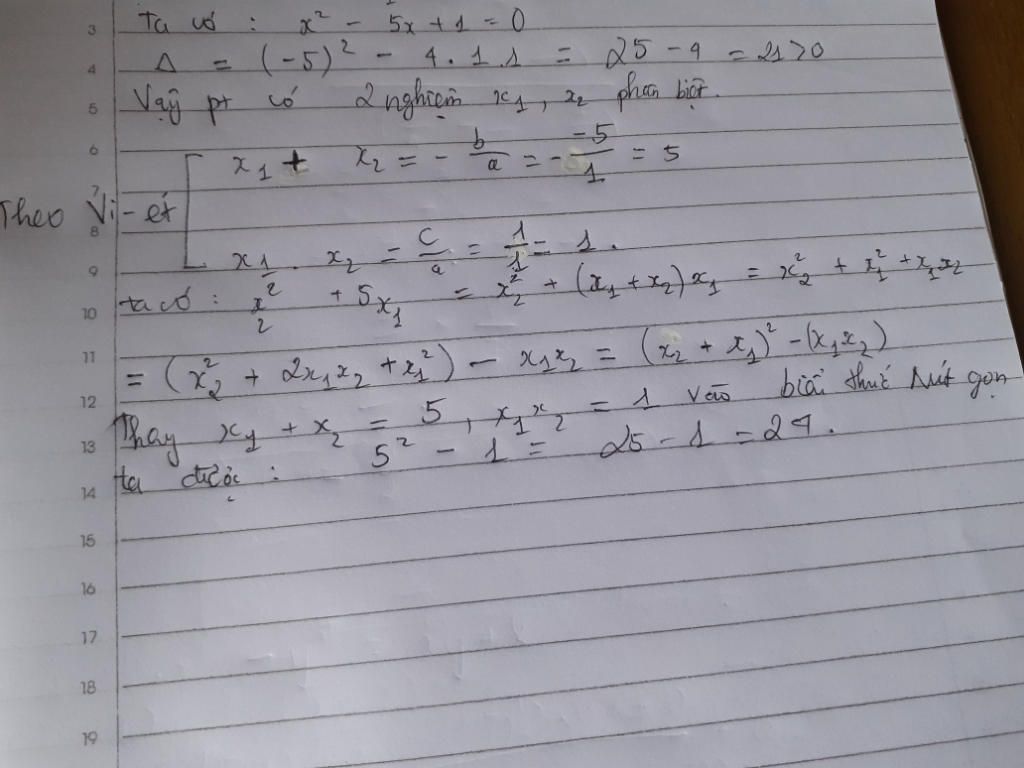 3 Ta có : x² - 5x + 1 = 0
4 Δ = (-5)² - 4.1.1 = 25 - 4 = 21 > 0
5 Vậy pt có 2 nghiệm x₁, x₂ phân biệt.
6 x₁ + x₂ = - b/a = - -5/1 = 5
7 Theo Vi-ét
8 x₁ . x₂ = c/a = 1/1 = 1 .
9 ta có : x₂² + 5x₁ = x₂² + (x₁ + x₂)x₁ = x₂² + x₁² + x₁x₂
10
11 = (x₂² + 2x₁x₂ + x₁²) - x₁x₂ = (x₂ + x₁)² - (x₁x₂)
12 Thay x₁ + x₂ = 5 , x₁x₂ = 1 vào biểu thức rút gọn
13 ta được : 5² - 1 = 25 - 1 = 24 .
14
15
16
17
18
19